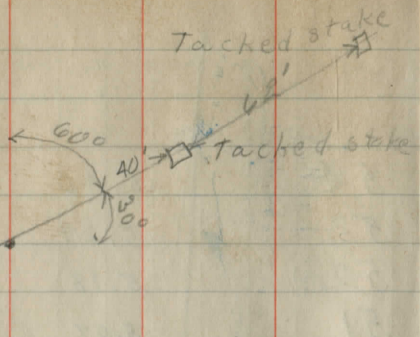 Tacked stake
62'
60°
40'
Tacked stake
30°